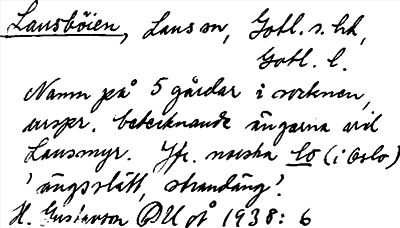 Lausböien, Laus sn, Gotl. s. hd,
Gotl. l.
Namn på 5 gårdar i socknen,
urspr. betecknande ängarna vid
Lausmyr. Jfr. norska lo (i Oslo)
'ängsslätt, strandäng'.
H. Gustavson 1938: 6